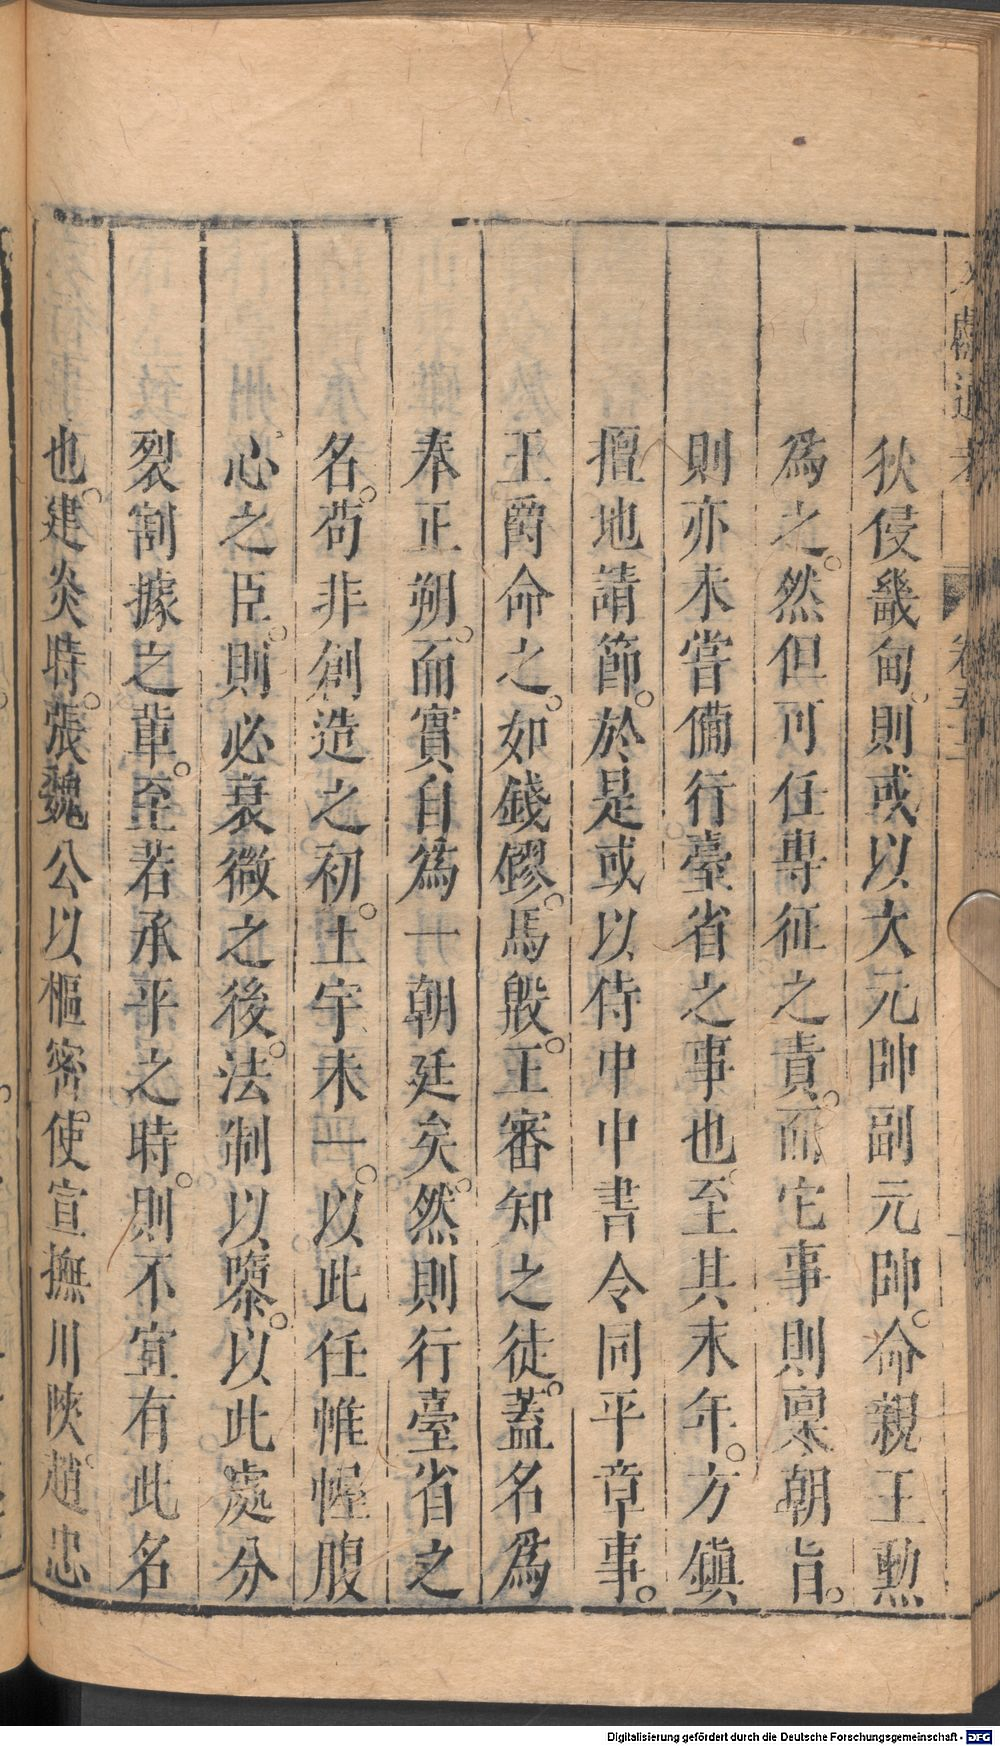 狄侵畿甸則或以大元帥副元帥。命親王勲
爲之。然但可任專征之責。而它事則稟朝旨。
則亦未嘗備行臺省之事也。至其末年。方鎮
擅地請節。於是或以侍中中書令同平章事。
王爵命之。如錢鏐。馬殷。王審知之徒。蓋名爲
奉正朔。而實自爲一朝廷矣。然則行臺省之
名。苟非創造之初。土宇未一。以此任帷幄腹
心之臣。則必衰微之後。法制以隳。以此處分
裂割據之輩。至若承平之時。則不宜有此名
也。建炎時。張魏公以樞密使宣撫川陝。趙忠
卷五十二
Digitalisierung gefördert durch die Deutsche Forschungsgemeinschaft - DFG